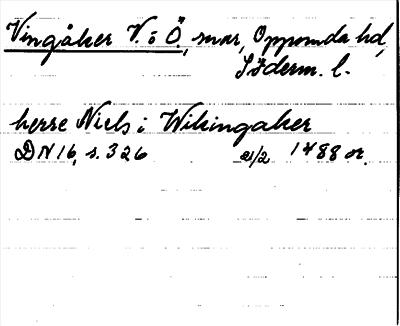 Vingåker V. o Ö., snar, Oppunda hd,
Söderm. l.
herre Niels i Wikingaker
DN 16, s. 326 21/2 1488 or.